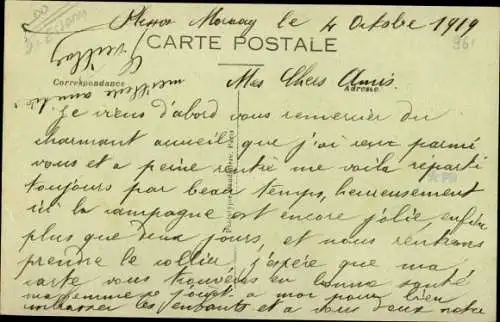 le 4 Octobre 1919
CARTE POSTALE
Correspondance
Adresse
Mes Chers Amis.
meilleure amitié
Je viens d'abord vous remercier du
charmant accueil que j'ai reçu parmi
vous et a peine rentré me voila reparti
toujours par beau temps, heureusement
ici la campagne est encore jolie, enfin
plus que deux jours, et nous rentrons
prendre le collier j'espère que ma
carte vous trouvera en bonne santé
ma femme se joint a moi pour bien
embrasser les enfants et a vous deux notre